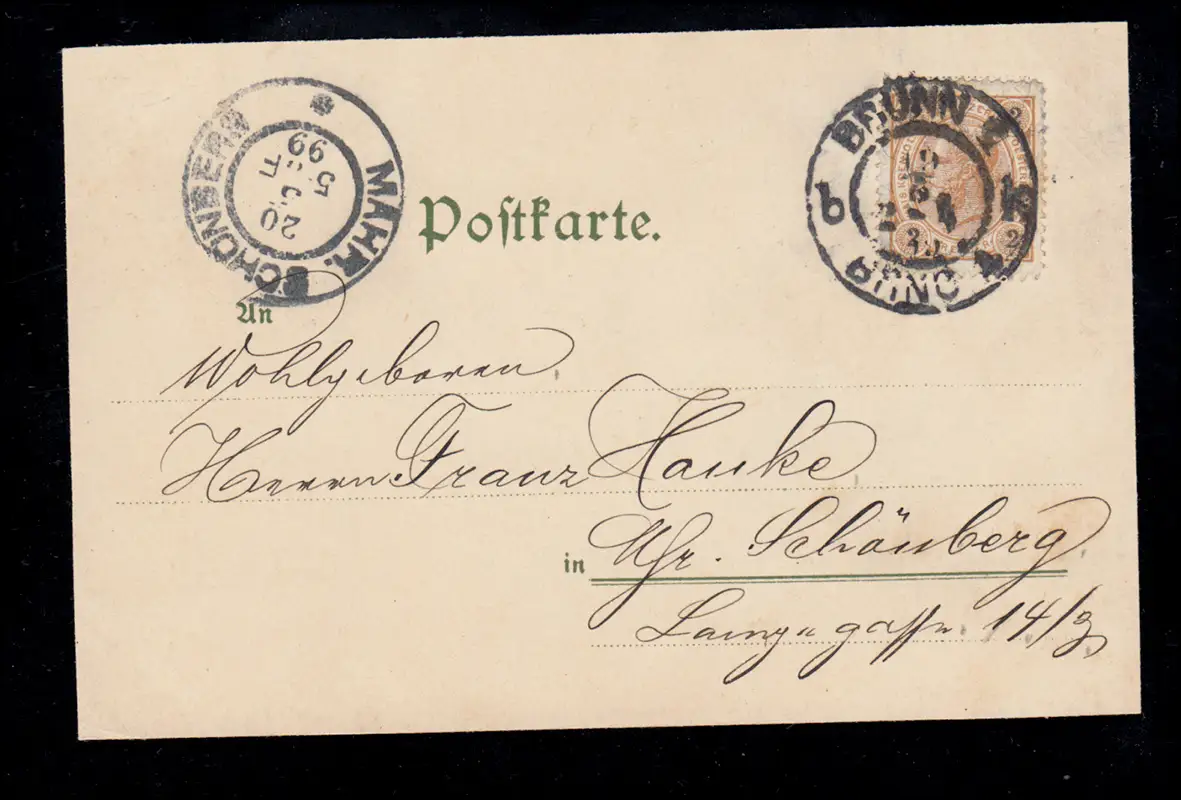 MÄHR. SCHÖNBERG
20
5
99
BRÜNN 4
BRNO 4
b
19
2
2
Postkarte.
An
Wohlgeboren
Herrn Franz Hauke
in Mhr. Schönberg
Lange gasse 14/3